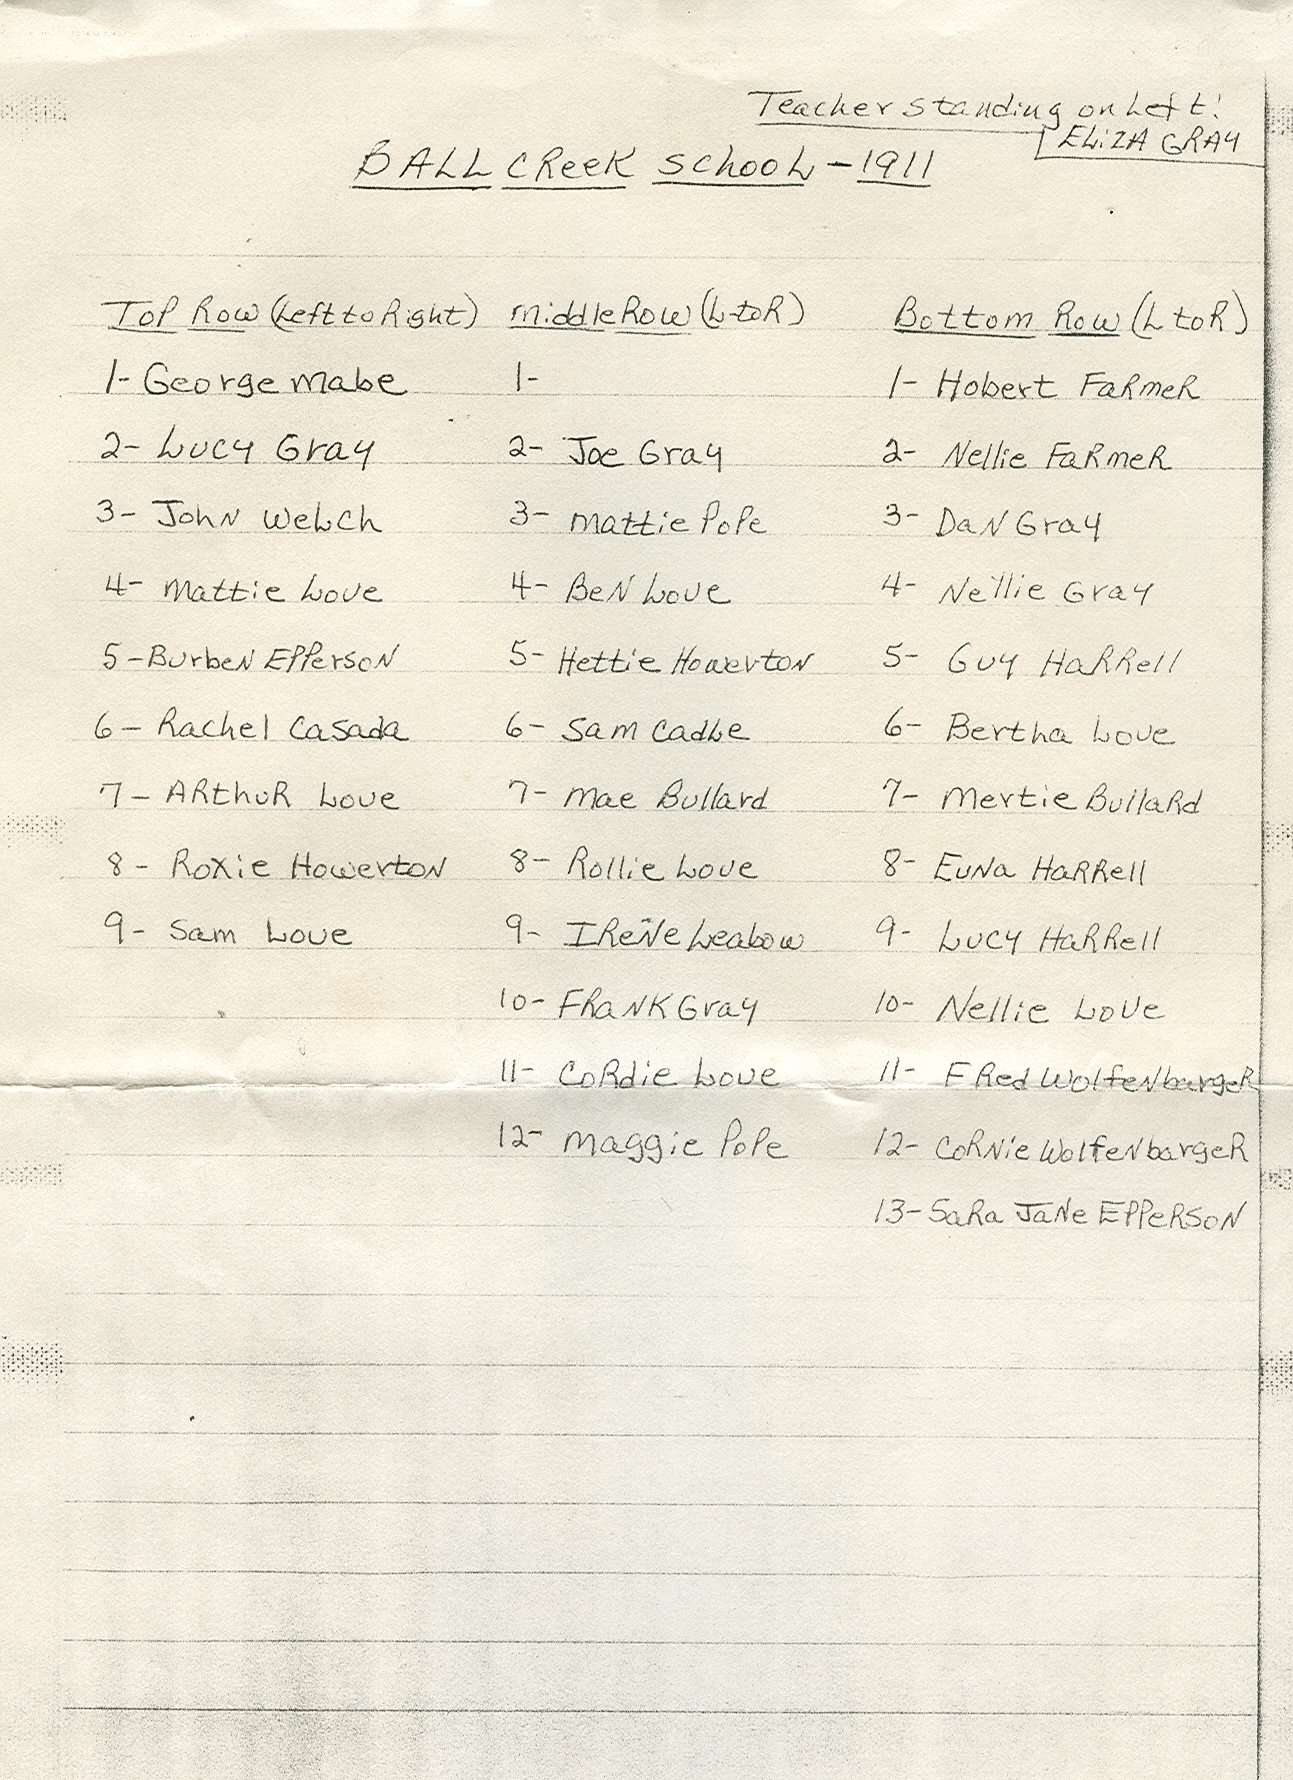 Teacher standing on Left:
ELiZA GRAY
BALL CReeK SchooL - 1911
Top Row (Left to Right)
1- George Mabe
2- Lucy Gray
3- John Welch
4- Mattie Love
5- Burben Epperson
6- Rachel Casada
7- Arthur Love
8- Roxie Howerton
9- Sam Love
Middle Row (L to R)
1-
2- Joe Gray
3- Mattie Pope
4- Ben Love
5- Hettie Howerton
6- Sam Cadle
7- Mae Bullard
8- Rollie Love
9- Irene Leabow
10- Frank Gray
11- Cordie Love
12- Maggie Pope
Bottom Row (L to R)
1- Hobert Farmer
2- Nellie Farmer
3- Dan Gray
4- Nellie Gray
5- Guy Harrell
6- Bertha Love
7- Mertie Bullard
8- Euna Harrell
9- Lucy Harrell
10- Nellie Love
11- Fred Wolfenbarger
12- Cornie Wolfenbarger
13- Sara Jane Epperson